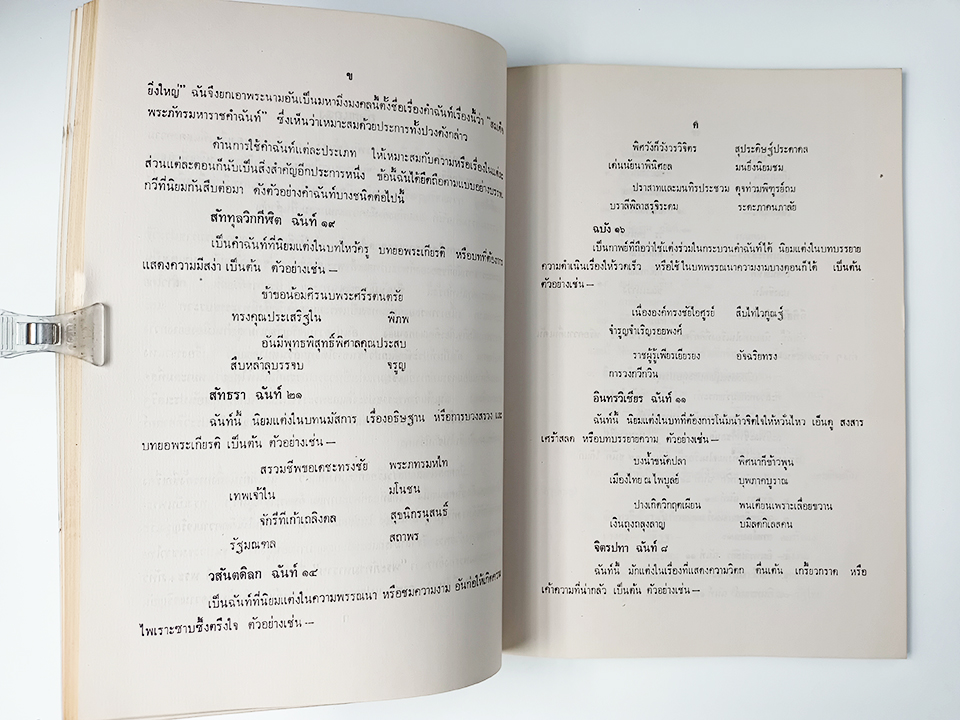 ข
ยิ่งใหญ่" ฉันจึงยกเอาพระนามอันเป็นมหามิ่งมงคลนี้ตั้งชื่อเรื่องคำฉันท์เรื่องนี้ว่า "สมเด็จ
พระภัทรมหาราชคำฉันท์" ซึ่งเห็นว่าเหมาะสมด้วยประการทั้งปวงดังกล่าว
ด้านการใช้คำฉันท์แต่ละประเภท ให้เหมาะสมกับความหรือเรื่องในแต่ละ
ส่วนแต่ละตอนก็นับเป็นสิ่งสำคัญอีกประการหนึ่ง ข้อนี้ฉันได้ยึดถือตามแบบอย่างบรรพ
กวีที่นิยมกันสืบต่อมา ดังตัวอย่างคำฉันท์บางชนิดต่อไปนี้
สัททุลวิกกีฬิต ฉันท์ ๑๙
เป็นคำฉันท์ที่นิยมแต่งในบทไหว้ครู บทยอพระเกียรติ หรือบทที่ต้องการ
แสดงความมีสง่า เป็นต้น ตัวอย่างเช่น —
ข้าขอน้อมศิรนบพระศรีรตนตรัย
ทรงคุณประเสริฐใน พิภพ
อันมีพุทธพิสุทธิ์พิศาลคุณประสบ
สืบหล้าลุบรรจบ จรูญ
สัทธรา ฉันท์ ๒๑
ฉันท์นี้ นิยมแต่งในบทนมัสการ เรื่องอธิษฐาน หรือการบวงสรวง และ
บทยอพระเกียรติ เป็นต้น ตัวอย่างเช่น —
สรวมชีพขอเดชะทรงชัย พระภทรมหไท
เทพเจ้าใน มโนชน
จักรีที่เก้าเถลิงดล สุขนิกรนุสนธิ์
รัฐมณฑล สถาพร
วสันตดิลก ฉันท์ ๑๔
เป็นฉันท์ที่นิยมแต่งในความพรรณนา หรือชมความงาม อันก่อให้เกิดความ
ไพเราะซาบซึ้งตรึงใจ ตัวอย่างเช่น —
ค
พิศวังก็วังวรวิจิตร สุประดิษฐ์ประดาดล
เด่นนัยนาพินิศยล มนยิ่งนิยมชม
ปราสาทและมนทิรประชวม ดุจท่วมพิฑูรย์ถม
บราลีพิลาสรุจิระดม ระดะภาคนภาลัย
ฉบัง ๑๖
เป็นกาพย์ที่ถือว่าใช้แต่งร่วมในกระบวนคำฉันท์ได้ นิยมแต่งในบทบรรยาย
ความดำเนินเรื่องให้รวดเร็ว หรือใช้ในบทพรรณนาความงามบางตอนก็ได้ เป็นต้น
ตัวอย่างเช่น —
เนื่ององค์ทรงชัยไอศูรย์ สืบไท้ไวกูณฐ์
จำรูญจำเริญรอยพงศ์
ราชผู้รู้เพียรเยียรยง อัจฉริยทรง
การวงกวีกวิน
อินทรวิเชียร ฉันท์ ๑๑
ฉันท์นี้ นิยมแต่งในบทที่ต้องการโน้มน้าวจิตใจให้หวั่นไหว เอ็นดู สงสาร
เศร้าสลด หรือบทบรรยายความ ตัวอย่างเช่น —
บงน้ำขนัดปลา พิศนาก็ข้าวพูน
เมืองไทย ณ ไพบูลย์ บุพภาคบุราณ
ปางเกิดวิกฤตเผียน พนเตียนเพราะเลื่อยขวาน
เงินถุงถลุงลาญ บมิลดกิเลสคน
จิตรปทา ฉันท์ ๘
ฉันท์นี้ มักแต่งในเรื่องที่แสดงความวิตก ตื่นเต้น เกรี้ยวกราด หรือ
เค้าความที่น่ากลัว เป็นต้น ตัวอย่างเช่น —